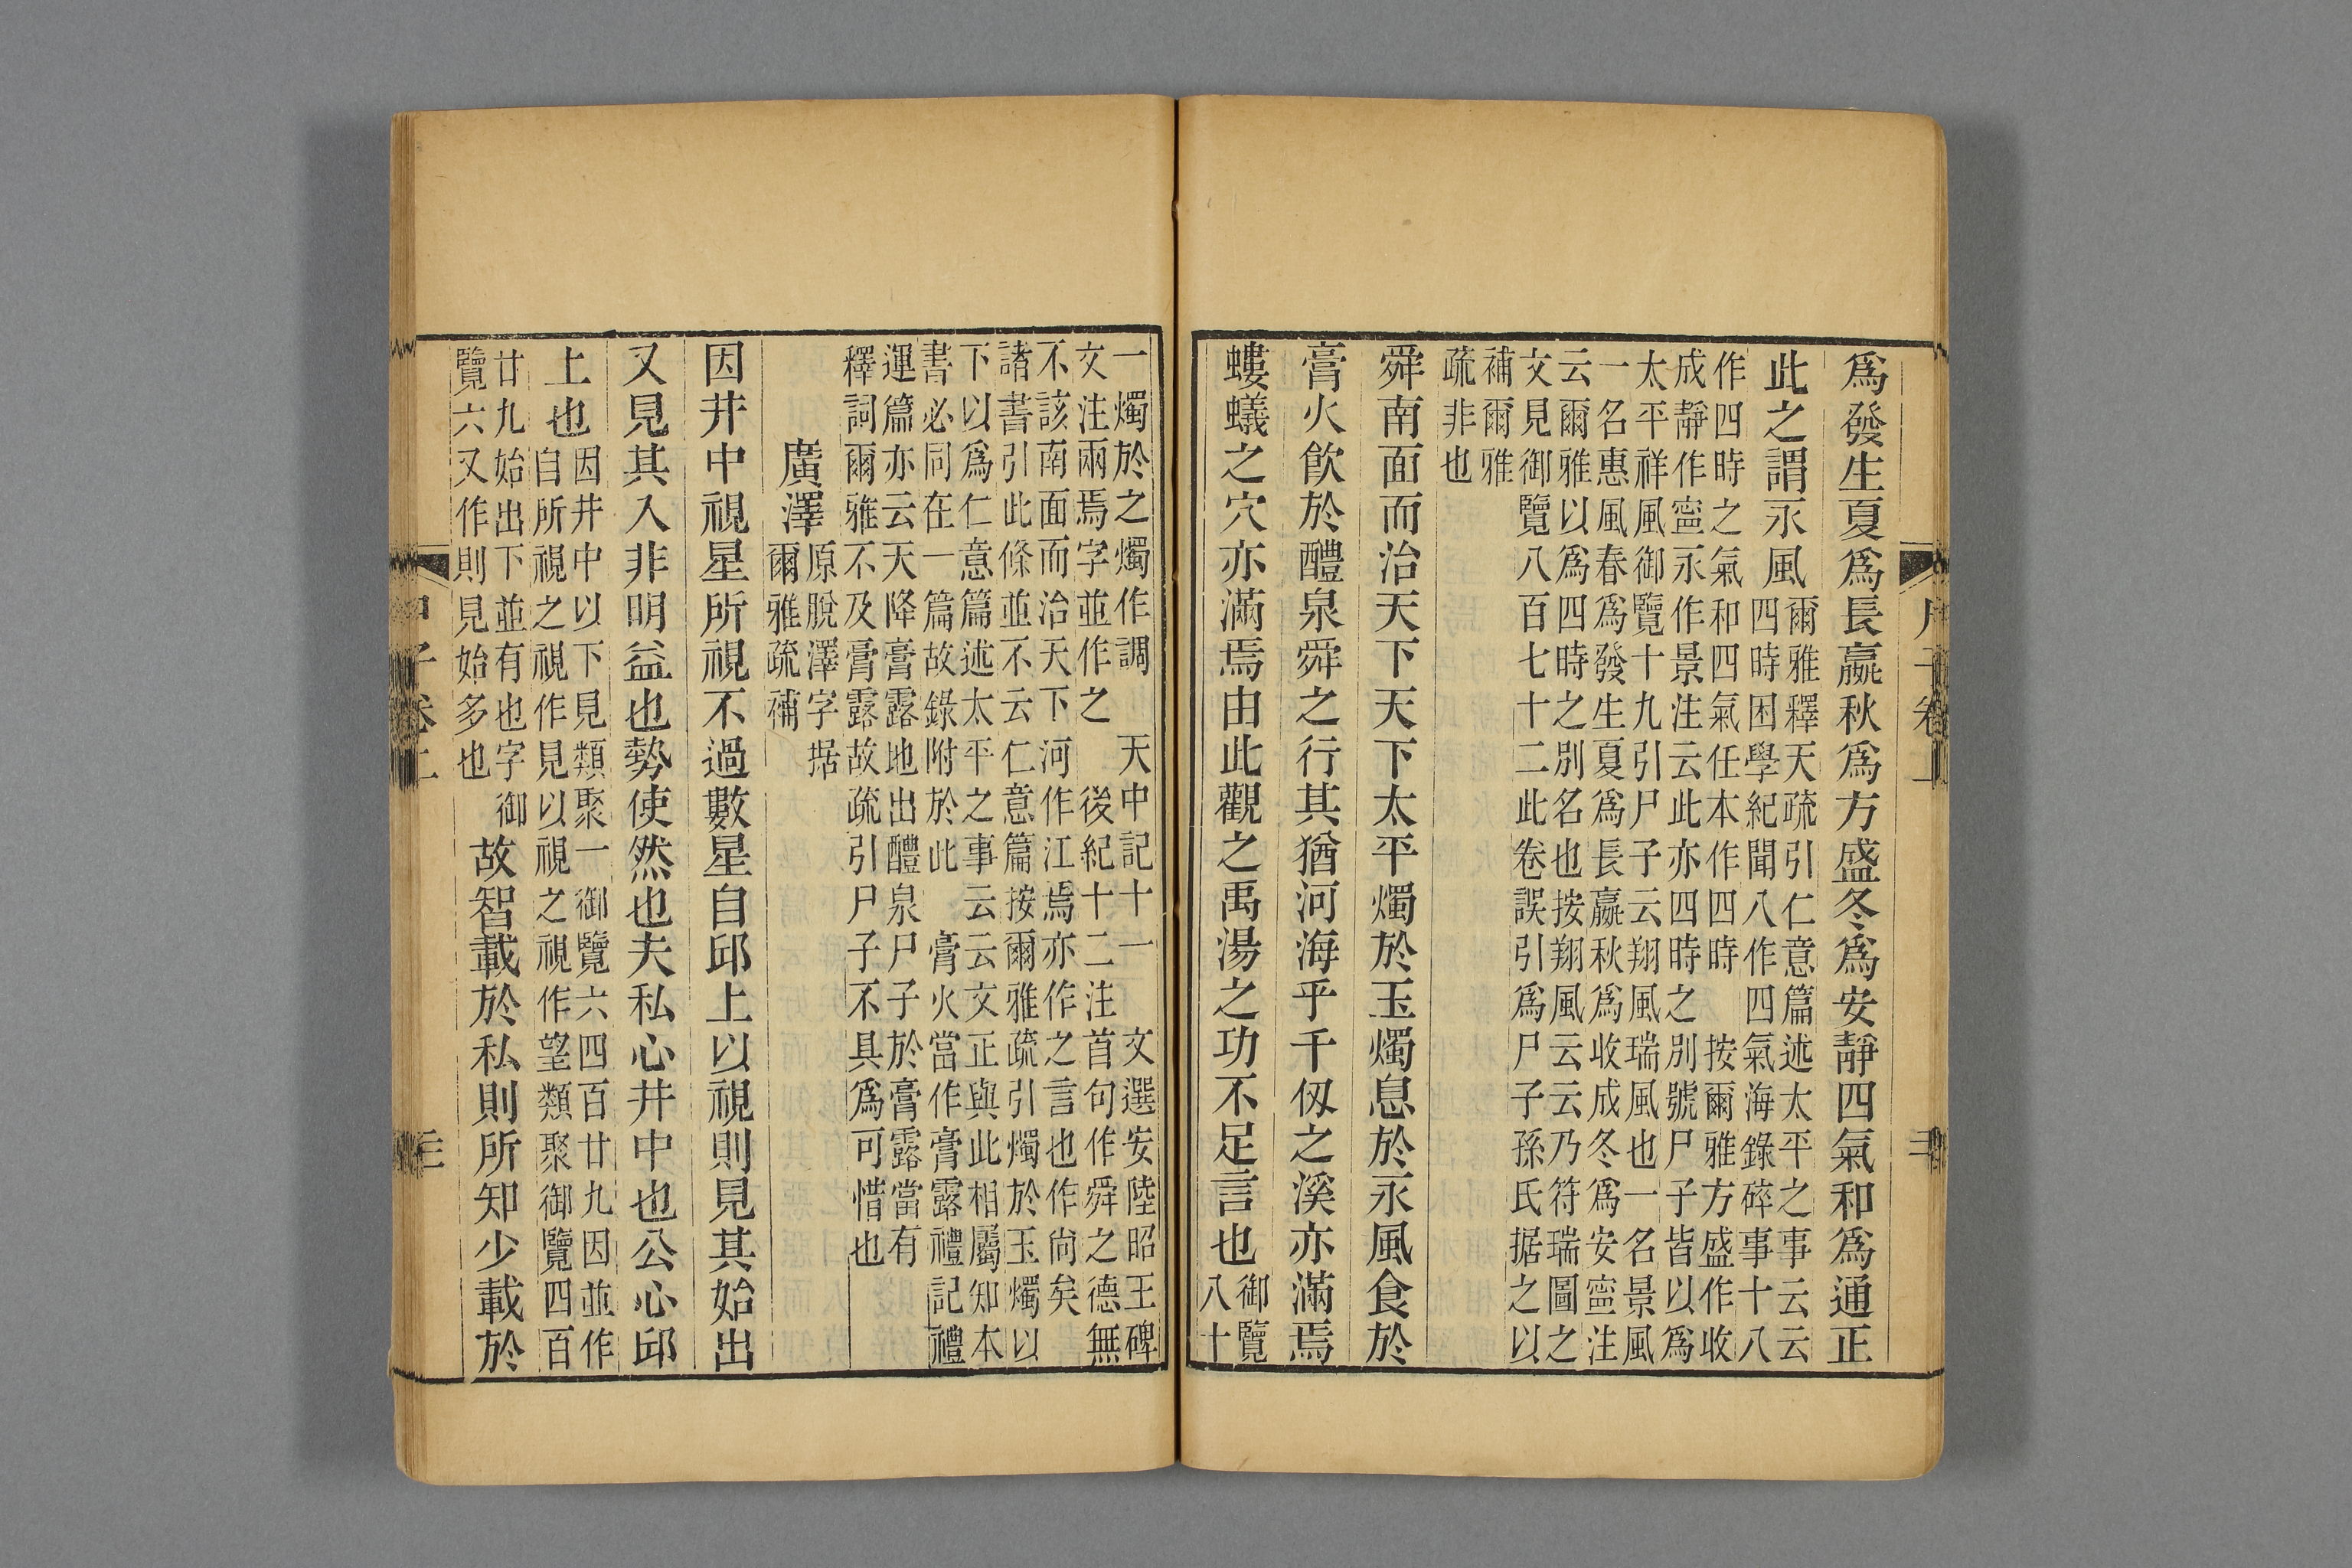 爲發生夏爲長嬴秋爲方盛冬爲安靜四氣和爲通正
此之謂永風
爾雅釋天疏引仁意篇述太平之事云云
四時困學紀聞八作四氣海錄碎事十八
作四時之氣和四氣任本作四時 按爾雅方盛作收
成靜作寧永作景注云此亦四時之別號尸子皆以爲
太平祥風御覽十九引尸子云翔風瑞風也一名景風
一名惠風春爲發生夏爲長嬴秋爲收成冬爲安寧注
云爾雅以爲四時之別名也按翔風云云乃符瑞圖之
文見御覽八百七十二此卷誤引爲尸子孫氏据之以
補爾雅
疏非也
舜南面而治天下天下太平燭於玉燭息於永風食於
膏火飲於醴泉舜之行其猶河海乎千仭之溪亦滿焉
螻蟻之穴亦滿焉由此觀之禹湯之功不足言也
御覽
八十
一燭於之燭作調 天中記十一 文選安陸昭王碑
文注兩焉字並作之 後紀十二注首句作舜之德無
不該南面而治天下河作江焉亦作之言也作尙矣
諸書引此條並不云仁意篇按爾雅疏引燭於玉燭以
下以爲仁意篇述太平之事云云文正與此相屬知本
書必同在一篇故錄附於此 膏火當作膏露禮記禮
運篇亦云天降膏露地出醴泉尸子於膏露當有
釋詞爾雅不及膏露故疏引尸子不具爲可惜也
廣澤
原脫澤字据
爾雅疏補
因井中視星所視不過數星自邱上以視則見其始出
又見其入非明益也勢使然也夫私心井中也公心邱
上也
因井中以下見類聚一御覽六四百廿九因並作
自所視之視作見以視之視作望類聚御覽四百
廿九始出下並有也字御
覽六又作則見始多也
故智載於私則所知少載於
尸子卷上
二
三